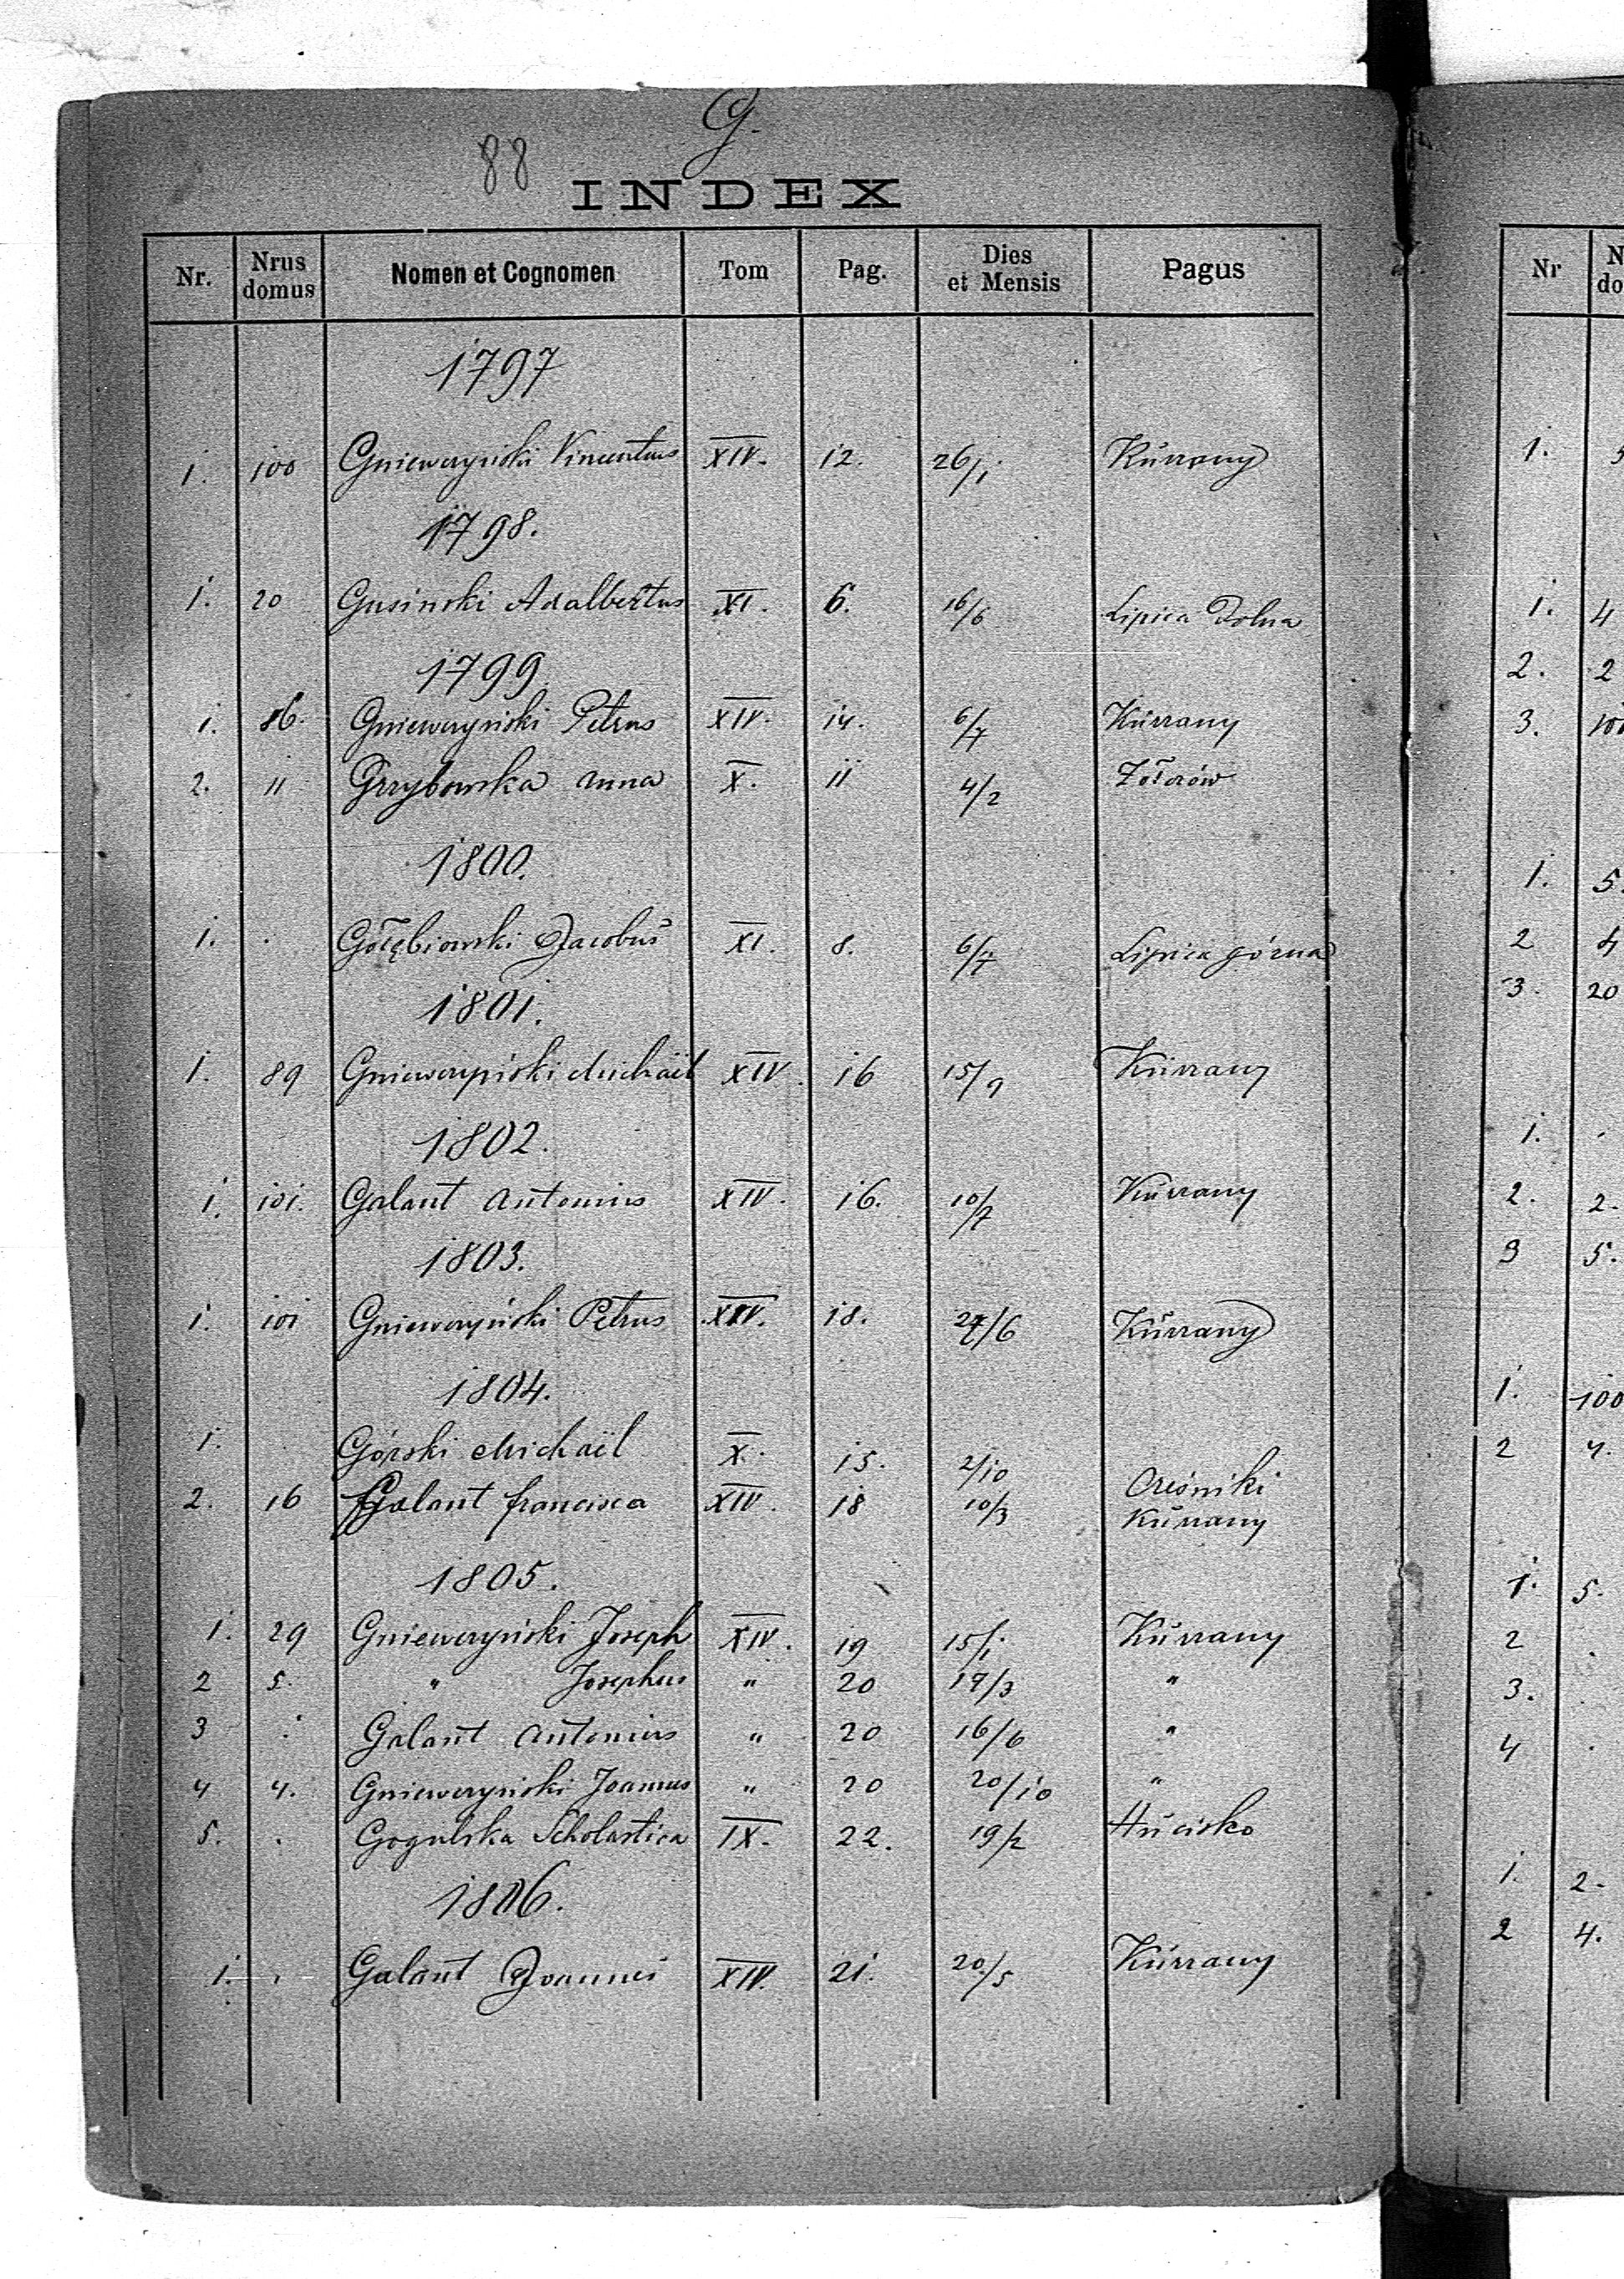 G.
88
INDEX
Nr. Nrus domus Nomen et Cognomen Tom Pag. Dies et Mensis Pagus
1797
1. 100 Gniewczyński Vincentius XIV. 12. 26/1 Kurzany
1798.
1. 20 Gusinski Adalbertus XI. 6. 16/6 Lipica Dolna
1799
1. 86. Gniewczyński Petrus XIV. 14. 6/7 Kurzany
2. 11 Grzybowska Anna X. 11 4/2 Żółczów
1800.
1. . Gołębiowski Jacobus XI. 8. 6/7 Lipica górna
1801.
1. 89 Gniewczyński Michaël XIV. 16 15/9 Kurzany
1802.
1. 101. Galant Antonius XIV. 16. 10/7 Kurzany
1803.
1. 101 Gniewczyński Petrus XIV. 18. 24/6 Kurzany
1804.
1. Górski Michaël X. 15. 2/10 Oreśniki
2. 16 Galant francisca XIV. 18 10/3 Kurzany
1805.
1. 29 Gniewczyński Joseph XIV. 19 15/1. Kurzany
2 5. " Josephus " 20 17/3 "
3 . Galant Antonius " 20 16/6 "
4 4. Gniewczyński Joannes " 20 20/10 "
5. . Gogulska Scholastica IX. 22. 19/2 Hucisko
1806.
1. . Galant Joannes XIV. 21. 20/5 Kurzany
Nr
1.
1. 4
2. 2
3. 10
1. 5.
2 4
3. 20
1. .
2. 2.
3 5.
1. 100
2 4.
1. 5.
2 .
3. .
4 .
1. 2.
2 4.